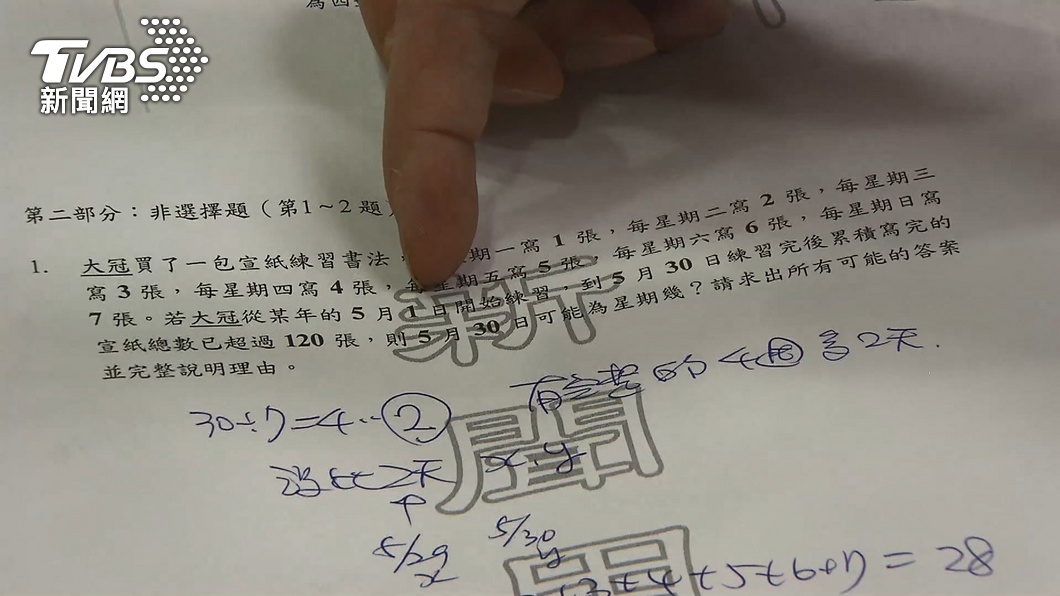 TVBS
新聞網
為四
第二部分：非選擇題（第1～2題）
1. 大冠買了一包宣紙練習書法，期一寫 1 張，每星期二寫 2 張，每星期三
寫 3 張，每星期四寫 4 張，每星期五寫 5 張，每星期六寫 6 張，每星期日寫
7 張。若大冠從某年的 5 月 1 日開始練習，到 5 月 30 日練習完後累積寫完的
宣紙總數已超過 120 張，則 5 月 30 日可能為星期幾？請求出所有可能的答案
並完整說明理由。
新聞
30÷7=4…2 有完整的 4週 多2天.
設此2天 x.y
5/29 5/30
x y
+3+4+5+6+7=28